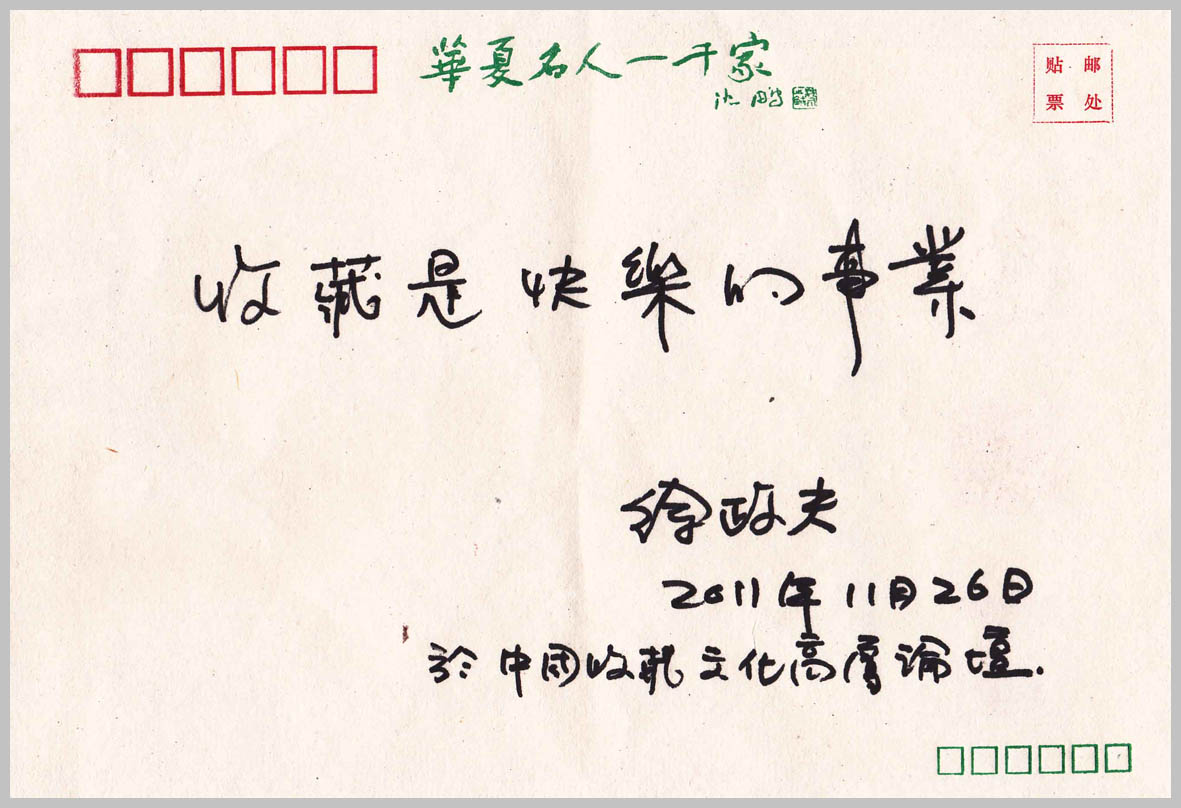 華夏名人一千家
沈鹏
贴邮
票处
收藏是快樂的事業
徐政夫
2011年11月26日
於中國收藏文化高層論壇.